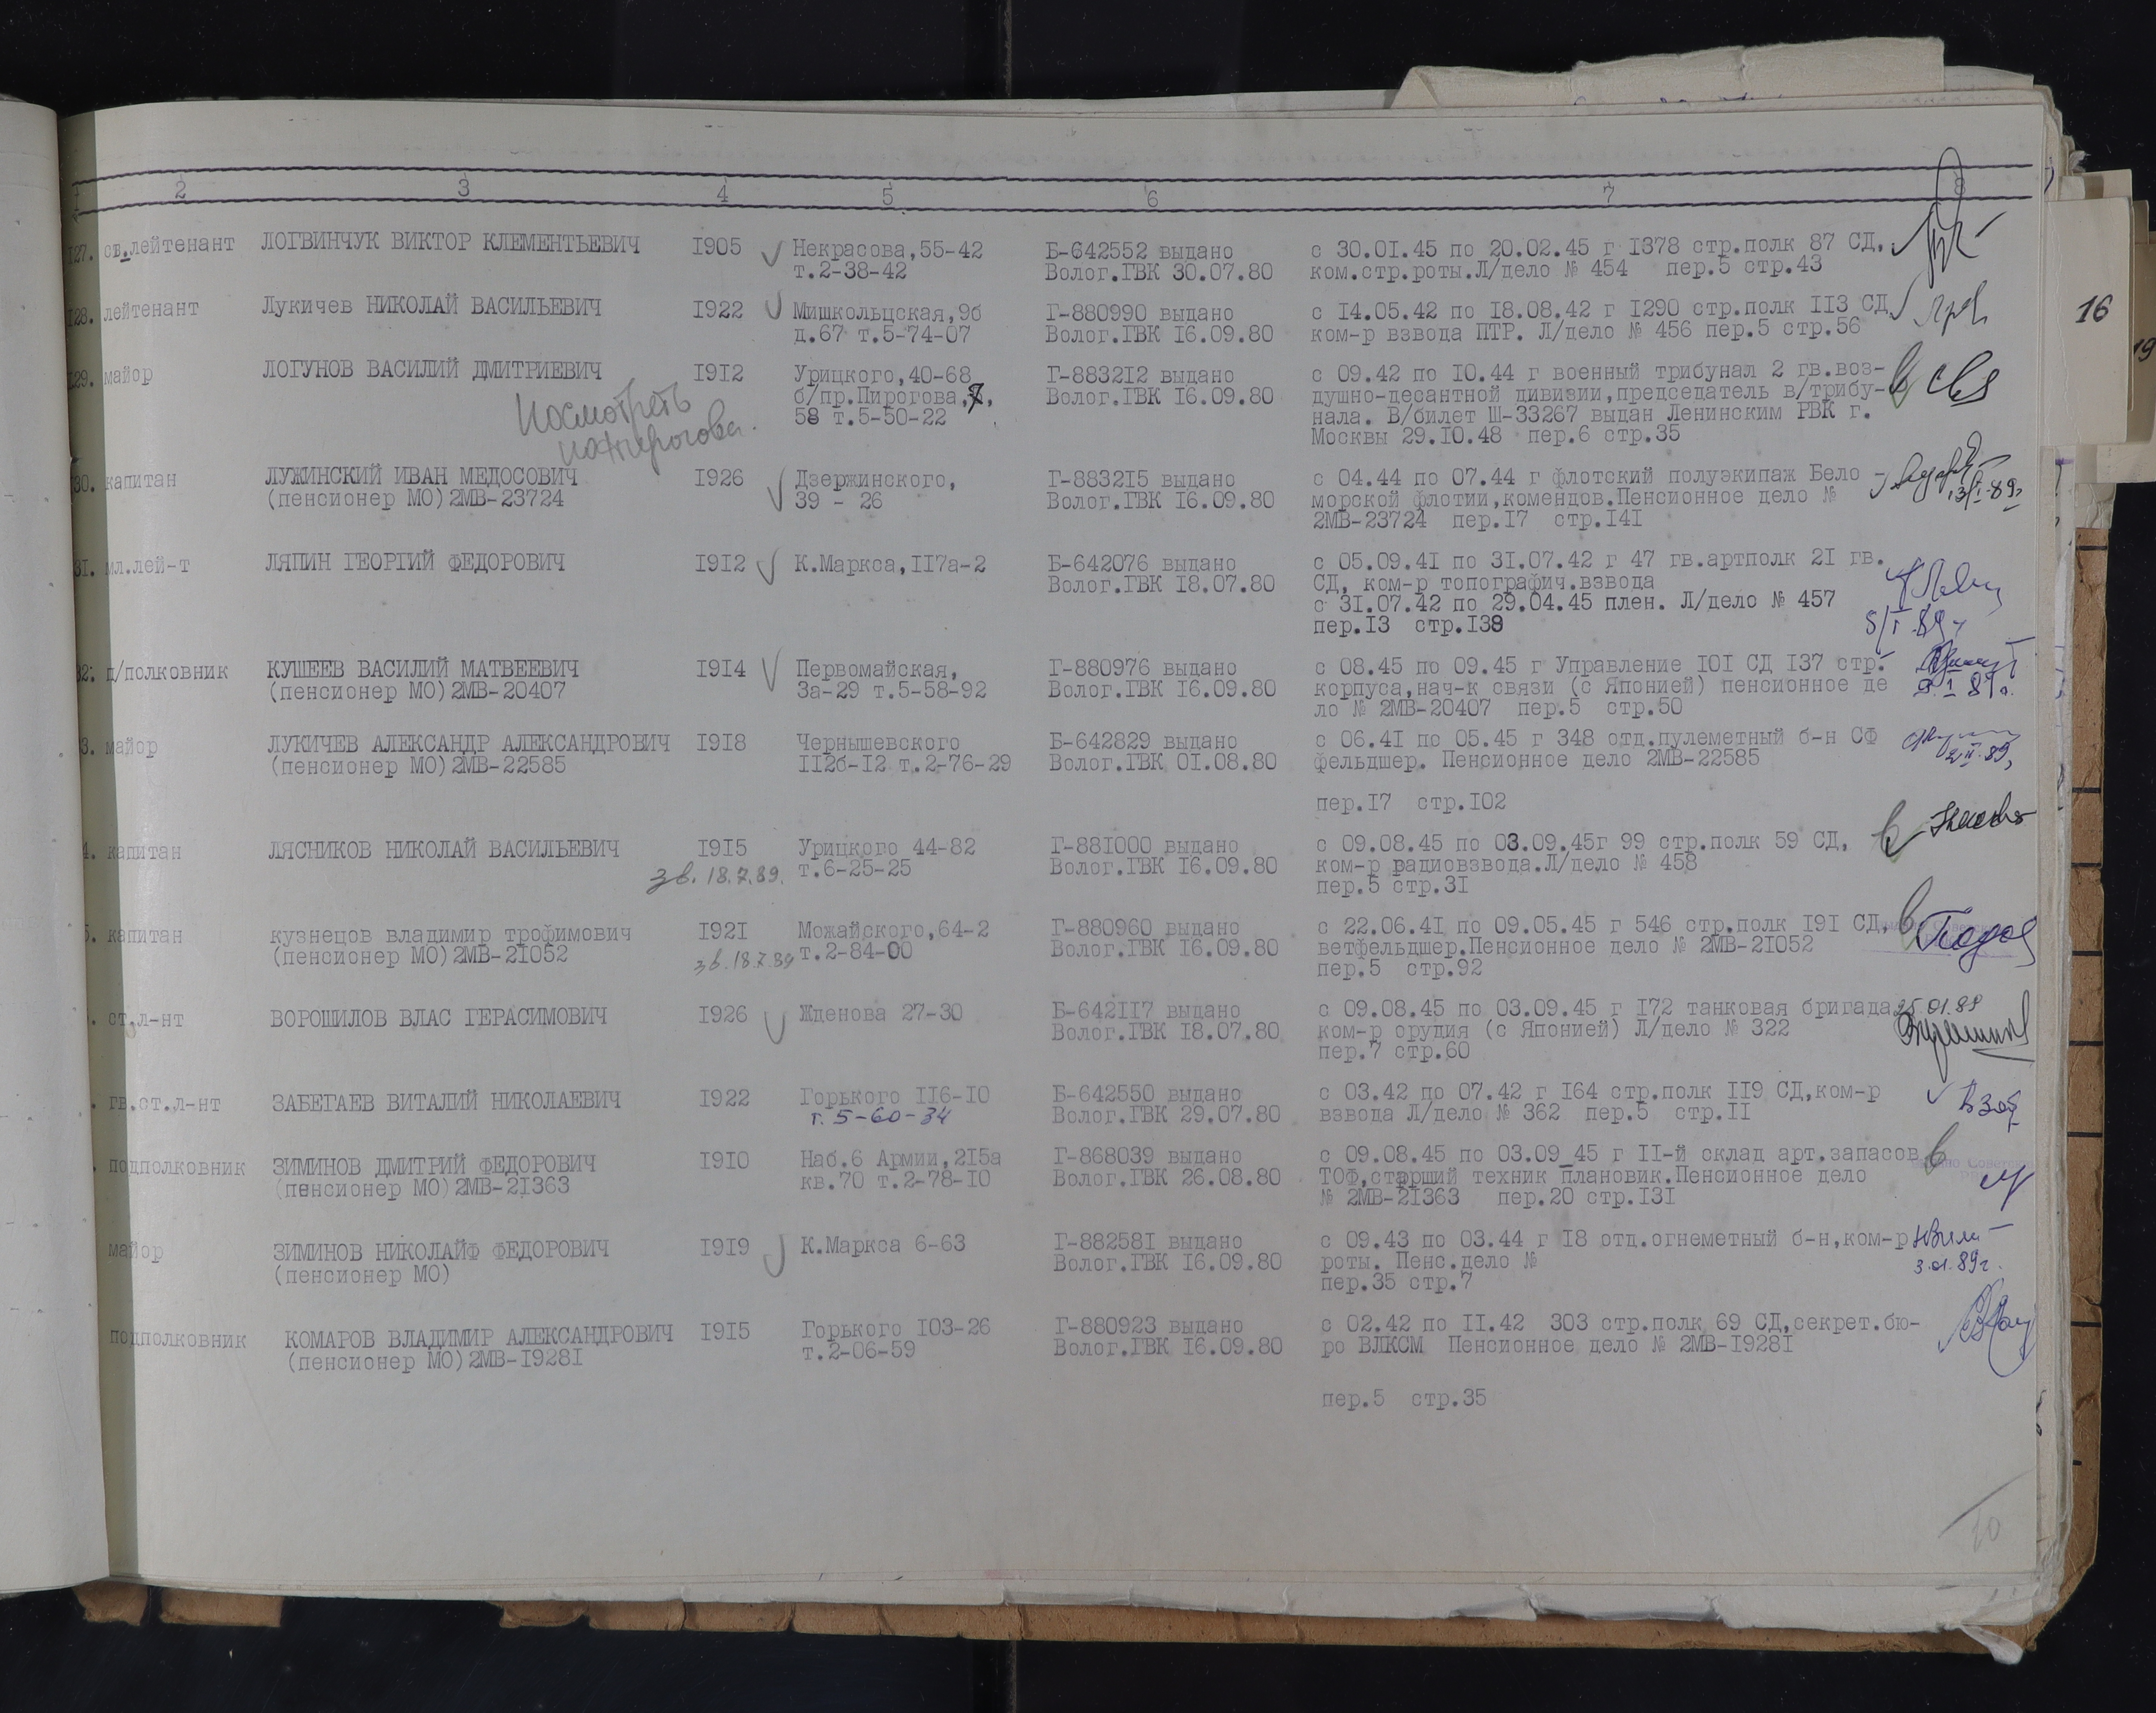 2 3 4 5 6 7 8
127. св.лейтенант ЛОГВИНЧУК ВИКТОР КЛЕМЕНТЬЕВИЧ 1905 Некрасова,55-42 Б-642552 выдано с 30.01.45 по 20.02.45 г 1378 стр.полк 87 СД,
т.2-38-42 Волог.ГВК 30.07.80 ком.стр.роты.Л/дело № 454 пер.5 стр.43
128. лейтенант Лукичев НИКОЛАЙ ВАСИЛЬЕВИЧ 1922 Мишкольцская,9б Г-880990 выдано с 14.05.42 по 18.08.42 г 1290 стр.полк 113 СД
д.67 т.5-74-07 Волог.ГВК 16.09.80 ком-р взвода ПТР. Л/дело № 456 пер.5 стр.56
16
129. майор ЛОГУНОВ ВАСИЛИЙ ДМИТРИЕВИЧ 1912 Урицкого,40-68 Г-883212 выдано с 09.42 по 10.44 г военный трибунал 2 гв.воз-
б/пр.Пирогова,7, Волог.ГВК 16.09.80 душно-десантной дивизии,председатель в/трибу-
58 т.5-50-22 нала. В/билет Ш-33267 выдан Ленинским РВК г.
Москвы 29.10.48 пер.6 стр.35
Посмотреть
30. капитан ЛУЖИНСКИЙ ИВАН МЕДОСОВИЧ 1926 Дзержинского, Г-883215 выдано с 04.44 по 07.44 г флотский полуэкипаж Бело -
(пенсионер МО)2МВ-23724 39 - 26 Волог.ГВК 16.09.80 морской флотии,комендов.Пенсионное дело №
2МВ-23724 пер.17 стр.141
31. мл.лей-т ЛЯПИН ГЕОРГИЙ ФЕДОРОВИЧ 1912 К.Маркса,117а-2 Б-642076 выдано с 05.09.41 по 31.07.42 г 47 гв.артполк 21 гв.
Волог.ГВК 18.07.80 СД, ком-р топографич.взвода
с 31.07.42 по 29.04.45 плен. Л/дело № 457
пер.13 стр.138
5/I.89
32: п/полковник КУШЕЕВ ВАСИЛИЙ МАТВЕЕВИЧ 1914 Первомайская, Г-880976 выдано с 08.45 по 09.45 г Управление 101 СД 137 стр.
(пенсионер МО)2МВ-20407 3а-29 т.5-58-92 Волог.ГВК 16.09.80 корпуса,нач-к связи (с Японией) пенсионное де
ло № 2МВ-20407 пер.5 стр.50
3. майор ЛУКИЧЕВ АЛЕКСАНДР АЛЕКСАНДРОВИЧ 1918 Чернышевского Б-642829 выдано с 06.41 по 05.45 г 348 отд.пулеметный б-н СФ
(пенсионер МО)2МВ-22585 112б-12 т.2-76-29 Волог.ГВК 01.08.80 фельдшер. Пенсионное дело 2МВ-22585
пер.17 стр.102
4. капитан ЛЯСНИКОВ НИКОЛАЙ ВАСИЛЬЕВИЧ 1915 Урицкого 44-82 Г-881000 выдано с 09.08.45 по 03.09.45г 99 стр.полк 59 СД,
зв. 18.7.89. т.6-25-25 Волог.ГВК 16.09.80 ком-р радиовзвода.Л/дело № 458
пер.5 стр.31
5. капитан кузнецов владимир трофимович 1921 Можайского,64-2 Г-880960 выдано с 22.06.41 по 09.05.45 г 546 стр.полк 191 СД,
(пенсионер МО)2МВ-21052 зв.18.7.89 т.2-84-00 Волог.ГВК 16.09.80 ветфельдшер.Пенсионное дело № 2МВ-21052
пер.5 стр.92
. ст.л-нт ВОРОШИЛОВ ВЛАС ГЕРАСИМОВИЧ 1926 Жданова 27-30 Б-642117 выдано с 09.08.45 по 03.09.45 г 172 танковая бригада 25.01.89
Волог.ГВК 18.07.80 ком-р орудия (с Японией) Л/дело № 322
пер.7 стр.60
. гв.ст.л-нт ЗАБЕГАЕВ ВИТАЛИЙ НИКОЛАЕВИЧ 1922 Горького 116-10 Б-642550 выдано с 03.42 по 07.42 г 164 стр.полк 119 СД,ком-р
т. 5-60-34 Волог.ГВК 29.07.80 взвода Л/дело № 362 пер.5 стр.11
. подполковник ЗИМИНОВ ДМИТРИЙ ФЕДОРОВИЧ 1910 Наб.6 Армии,215а Г-868039 выдано с 09.08.45 по 03.09_45 г 11-й склад арт.запасов
(пенсионер МО)2МВ-21363 кв.70 т.2-78-10 Волог.ГВК 26.08.80 ТОФ,старший техник плановик.Пенсионное дело
№ 2МВ-21363 пер.20 стр.131
майор ЗИМИНОВ НИКОЛАЙФ ФЕДОРОВИЧ 1919 К.Маркса 6-63 Г-882581 выдано с 09.43 по 03.44 г 18 отд.огнеметный б-н,ком-р
(пенсионер МО) Волог.ГВК 16.09.80 роты. Пенс.дело № 3.01.89г.
пер.35 стр.7
подполковник КОМАРОВ ВЛАДИМИР АЛЕКСАНДРОВИЧ 1915 Горького 103-26 Г-880923 выдано с 02.42 по 11.42 303 стр.полк 69 СД,секрет.бю-
(пенсионер МО)2МВ-19281 т.2-06-59 Волог.ГВК 16.09.80 ро ВЛКСМ Пенсионное дело № 2МВ-19281
пер.5 стр.35